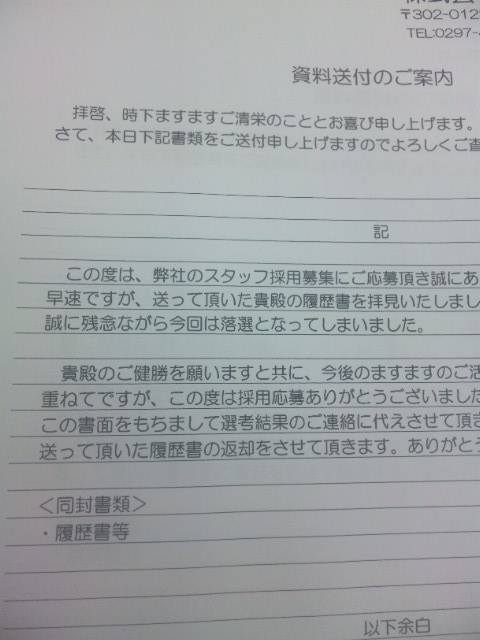 〒302-012
TEL:0297-
資料送付のご案内
拝啓、時下ますますご清栄のこととお喜び申し上げます。
さて、本日下記書類をご送付申し上げますのでよろしくご査
記
この度は、弊社のスタッフ採用募集にご応募頂き誠にあ
早速ですが、送って頂いた貴殿の履歴書を拝見いたしまし
誠に残念ながら今回は落選となってしまいました。
貴殿のご健勝を願いますと共に、今後のますますのご活
重ねてですが、この度は採用応募ありがとうございました
この書面をもちまして選考結果のご連絡に代えさせて頂き
送って頂いた履歴書の返却をさせて頂きます。ありがとう
<同封書類>
・履歴書等
以下余白